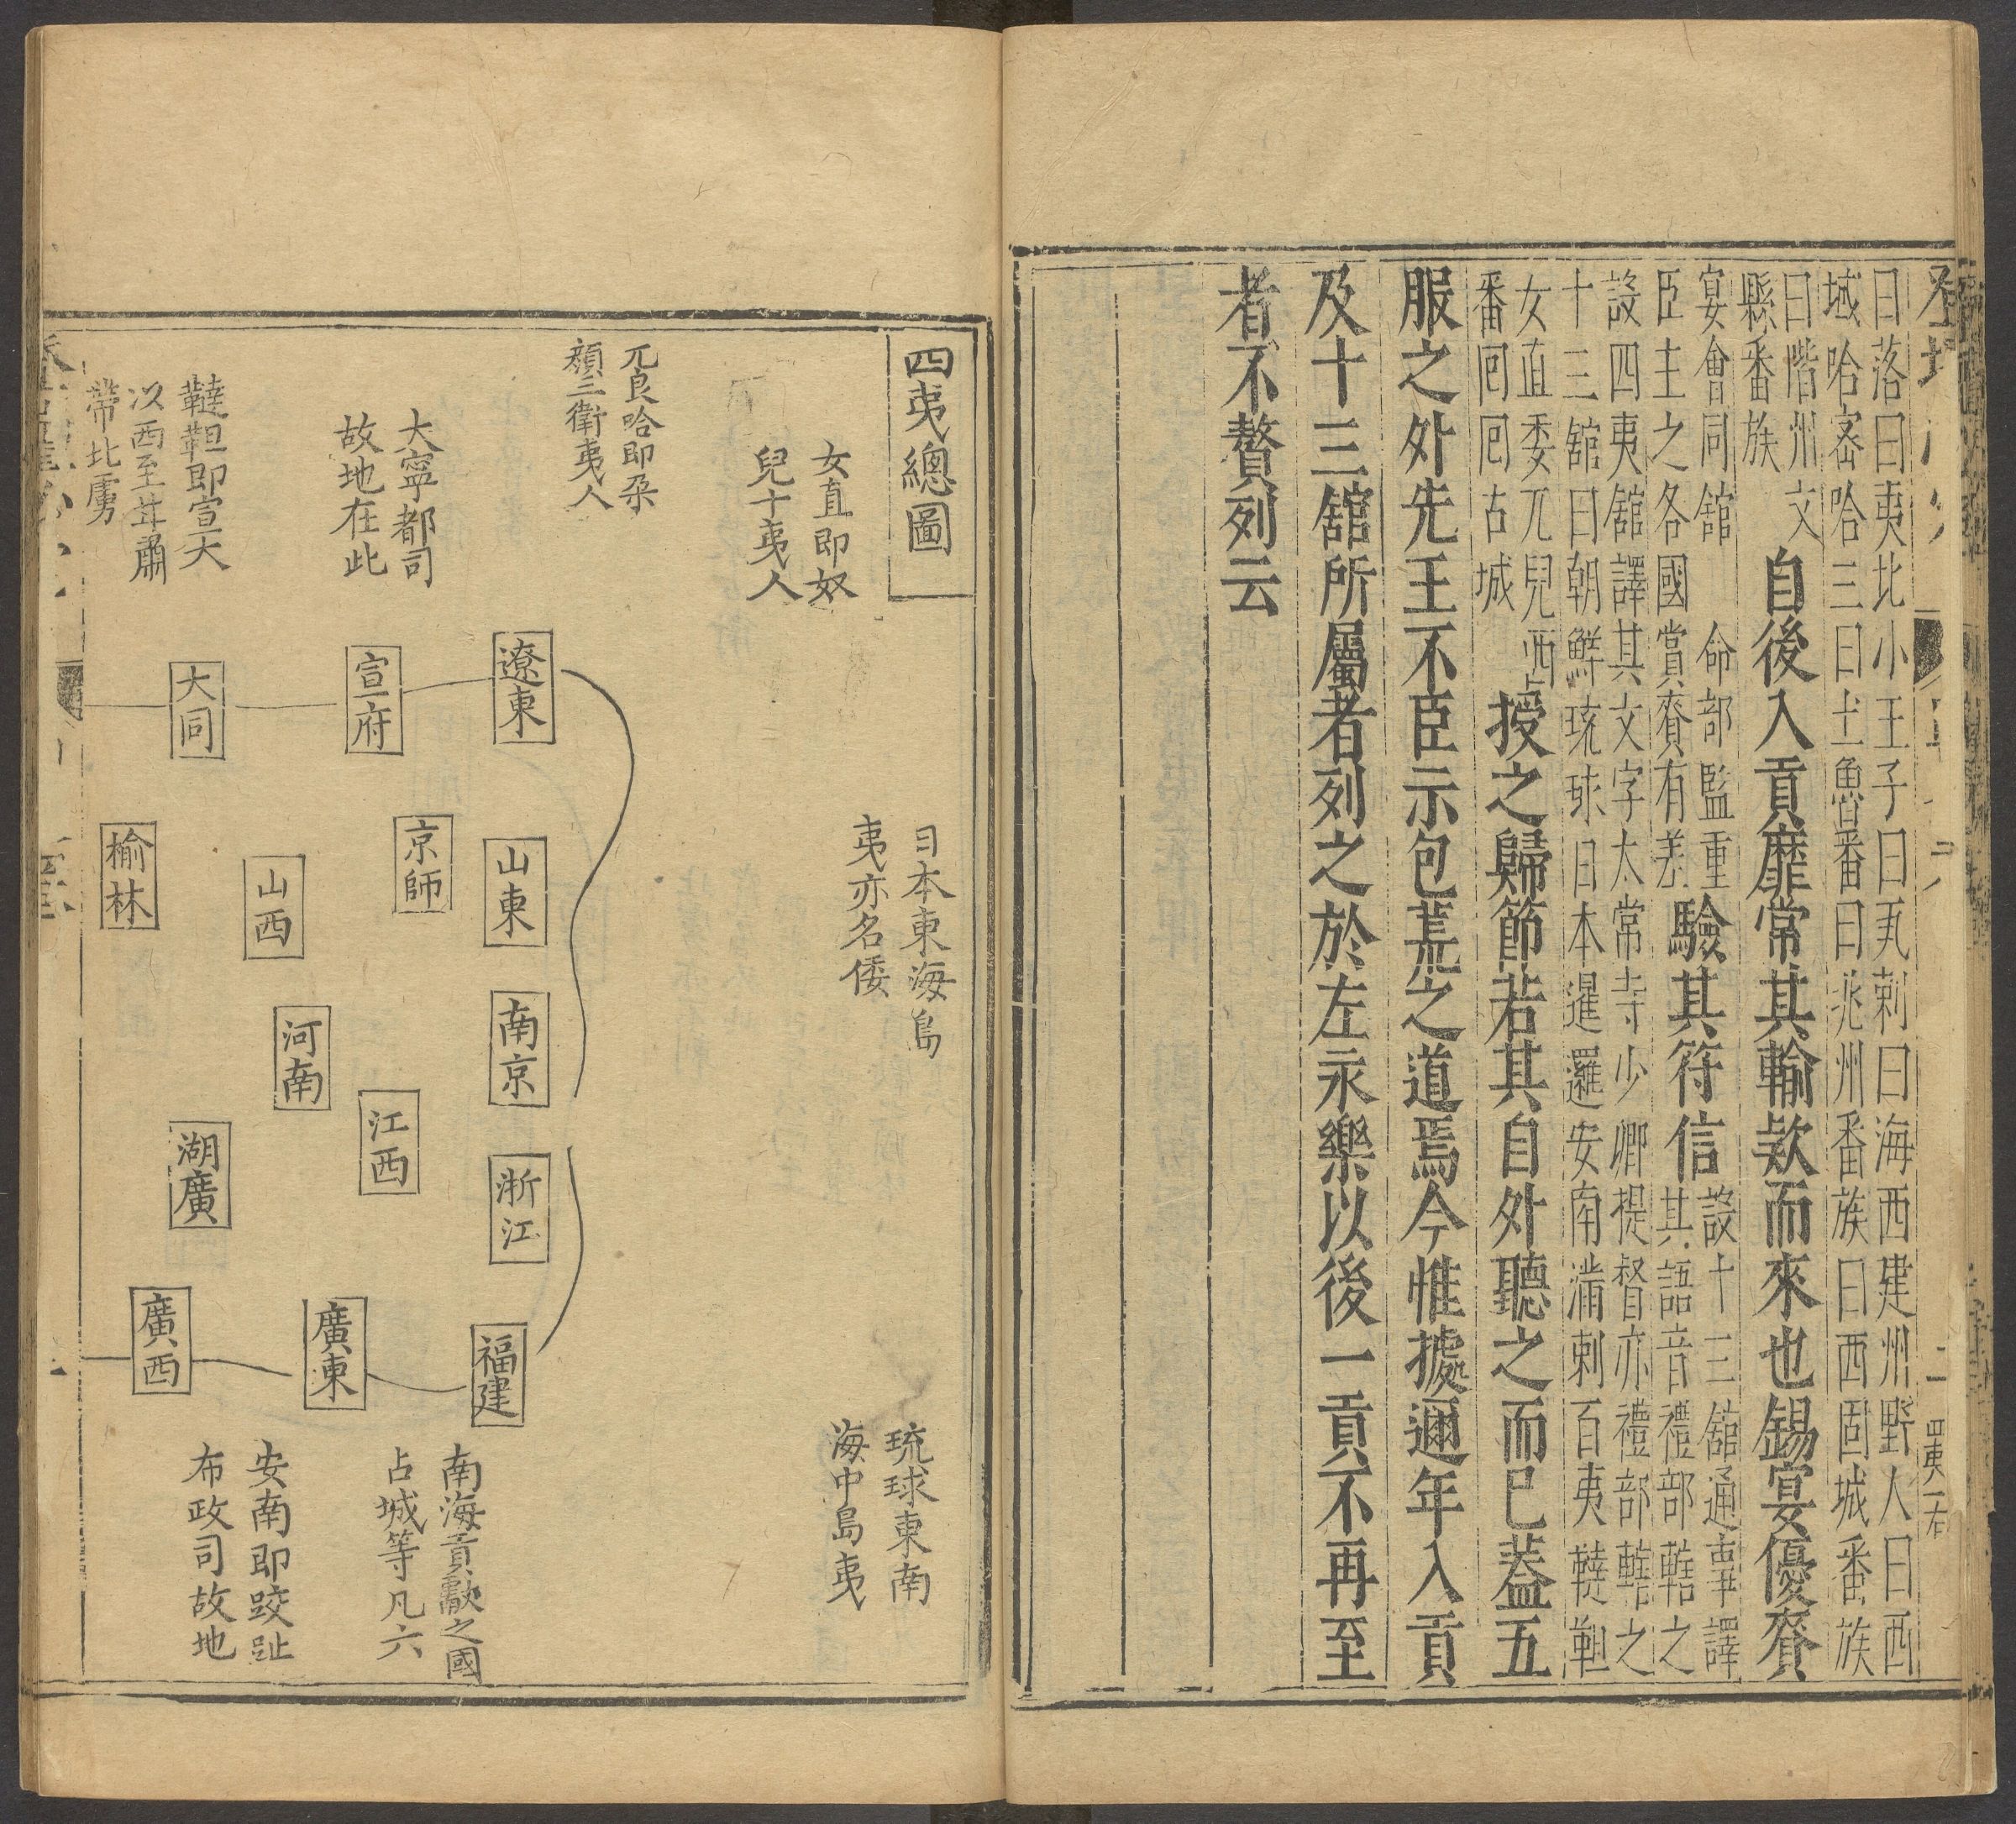 曰落曰夷北小王子曰瓦剌曰海西建州野人曰西
域哈宻哈三曰土魯番曰兆州番族曰西固城番族
曰階州文
縣番族
自後入貢靡常其輸欵而來也錫宴優賚
宴會同舘 命部監重
臣主之各國賞賚有差
驗其符信
設十三舘通事譯
其語音禮部轄之
設四夷舘譯其文字太常寺少卿提督亦禮部轄之
十三舘曰朝鮮琉球日本暹邏安南滿剌百夷韃靼
女直委兀兒西
番回回占城
授之歸節若其自外聽之而已蓋五
服之外先王不臣示包荒之道焉今惟據邇年入貢
及十三舘所屬者列之於左永樂以後一貢不再至
者不贅列云
四夷二右
四夷總圖
女直即奴
兒十夷人
兀良哈即朶
顏三衛夷人
大寧都司
故地在此
韃靼即宣大
以西至甘肅
帶北虜
日本東海島
夷亦名倭
琉球東南
海中島夷
遼東
宣府
大同
山東
京師
山西
榆林
南京
河南
浙江
江西
湖廣
福建
廣東
廣西
南海貢獻之國
占城等凡六
安南即跤趾
布政司故地